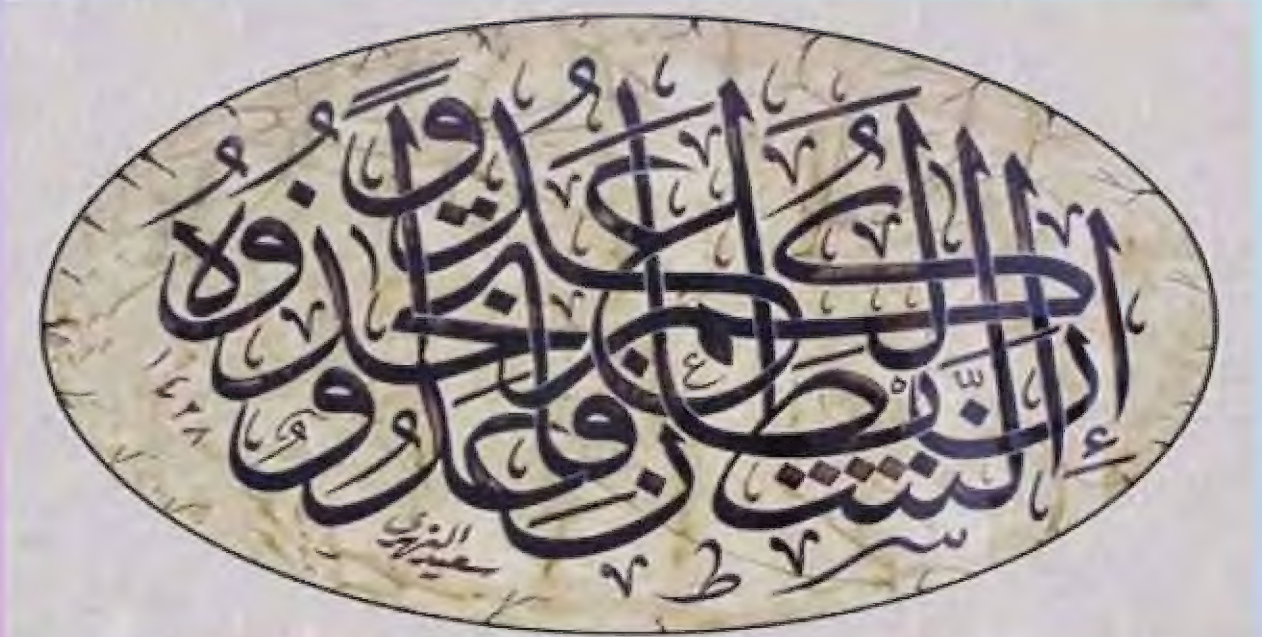 إِنَّ الشَّيْطَانَ لَكُمْ عَدُوٌّ فَاتَّخِذُوهُ عَدُوًّا
سعيد النهري
١٤٢٨